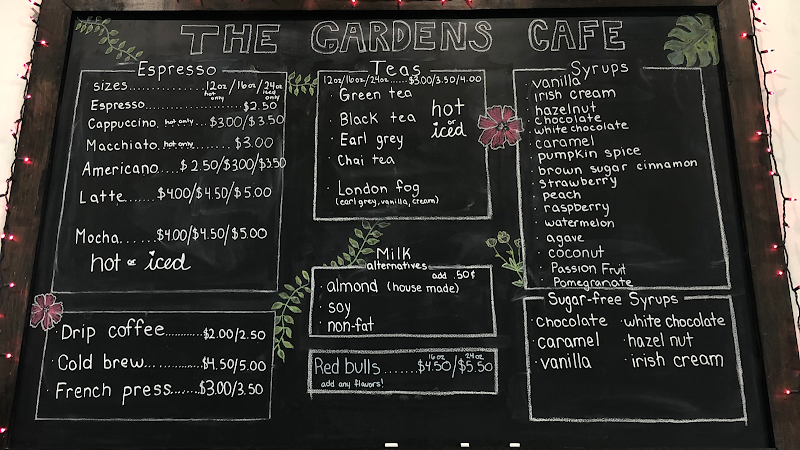 THE GARDENS CAFE
Espresso
sizes..............12oz/16oz/24oz
hot only iced only
Espresso..................$2.50
Cappuccino. hot only.....$3.00/$3.50
Macchiato. hot only.......$3.00
Americano.....$2.50/$3.00/$3.50
Latte.......$4.00/$4.50/$5.00
Mocha......$4.00/$4.50/$5.00
hot or iced
Drip coffee...........$2.00/2.50
Cold brew............$4.50/5.00
French press.......$3.00/3.50
Teas
12oz/16oz/24oz.....$3.00/3.50/4.00
· Green tea
· Black tea
· Earl grey
· Chai tea
hot
or
iced
· London fog
(earl grey, vanilla, cream)
Milk
alternatives
add .50¢
· almond (house made)
· soy
· non-fat
16oz 24oz
Red bulls.......$4.50/$5.50
add any flavors!
Syrups
· vanilla
· irish cream
· hazelnut
· chocolate
· white chocolate
· caramel
· pumpkin spice
· brown sugar cinnamon
· strawberry
· peach
· raspberry
· watermelon
· agave
· coconut
· Passion Fruit
· Pomegranate
Sugar-free Syrups
· chocolate · white chocolate
· caramel · hazel nut
· vanilla · irish cream